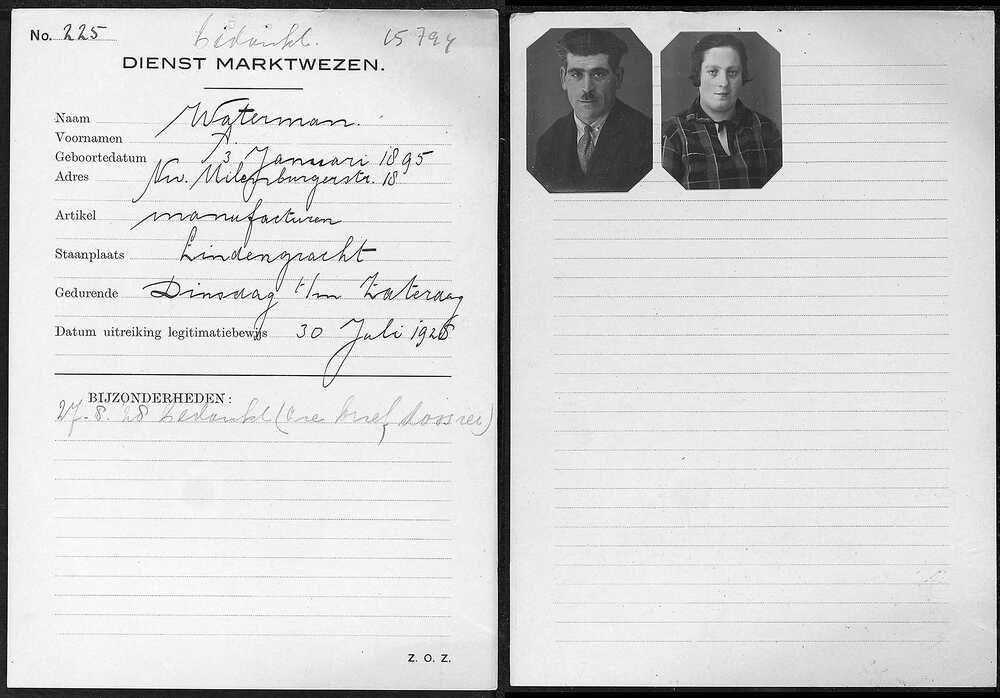 No. 225 bedankt. 15794
DIENST MARKTWEZEN.
Naam Waterman.
Voornamen A.
Geboortedatum 3 Januari 1895
Adres Nw. Uilenburgerstr. 18
Artikel manufacturen
Staanplaats Lindengracht
Gedurende Dinsdag t/m Zaterdag
Datum uitreiking legitimatiebewijs 30 Juli 1928
BIJZONDERHEDEN:
27-8.28 bedankt (zie brief dossier)
Z. O. Z.